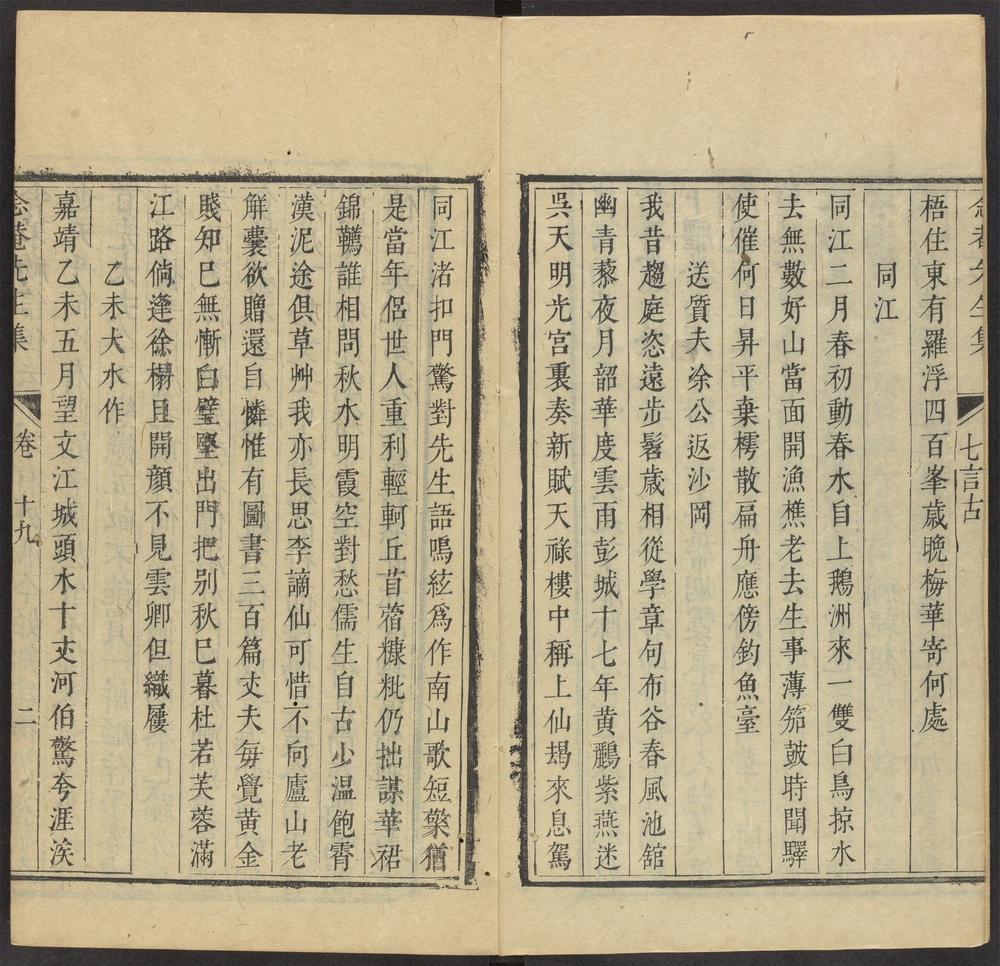 七言古
梧住東有羅浮四百峯歲晚梅華寄何處
同江
同江二月春初動春水自上鵝洲來一雙白鳥掠水
去無數好山當面開漁樵老去生事薄笳皷時聞驛
使催何日昇平棄樗散扁舟應傍釣魚臺
送質夫凃公返沙岡
我昔趨庭恣遠步髫歲相從學章句布谷春風池舘
幽青藜夜月韶華度雲雨彭城十七年黄鸝紫燕迷
吳天明光宫裏奏新賦天祿樓中稱上仙朅來息駕
同江渚扣門驚對先生語鳴絃爲作南山歌短藥猶
是當年侶世人重利輕軻丘苜蓿糠粃仍拙謀華裙
錦韉誰相問秋水明霞空對愁儒生自古少温飽霄
漢泥途俱草艸我亦長思李謫仙可惜不向廬山老
解囊欲贈還自憐惟有圖書三百篇丈夫每覺黄金
賤知巳無慚白璧堅出門把别秋巳暮杜若芙蓉滿
江路倘逢徐榻且開顔不見雲卿但織屨
乙未大水作
嘉靖乙未五月望文江城頭水十丈河伯驚夸涯涘
念菴先生集
卷
十九
二